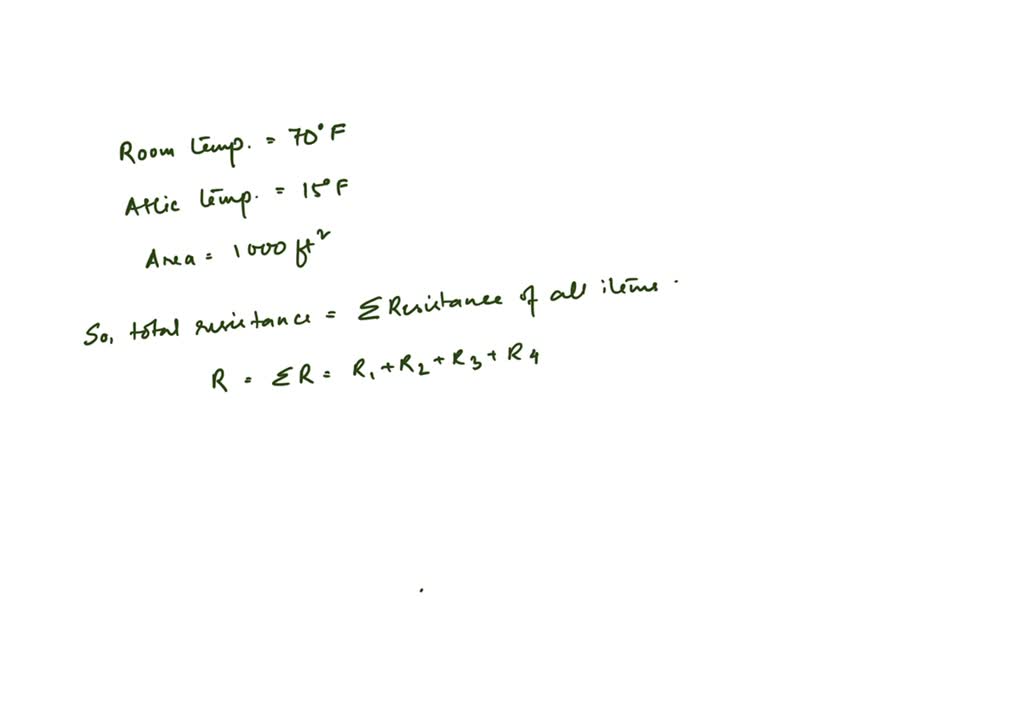 Room temp. = 70°F
Attic temp. = 15°F
Area = 1000 ft²
So, total resistance = Σ Resistance of all items.
R = ΣR = R₁ + R₂ + R₃ + R₄